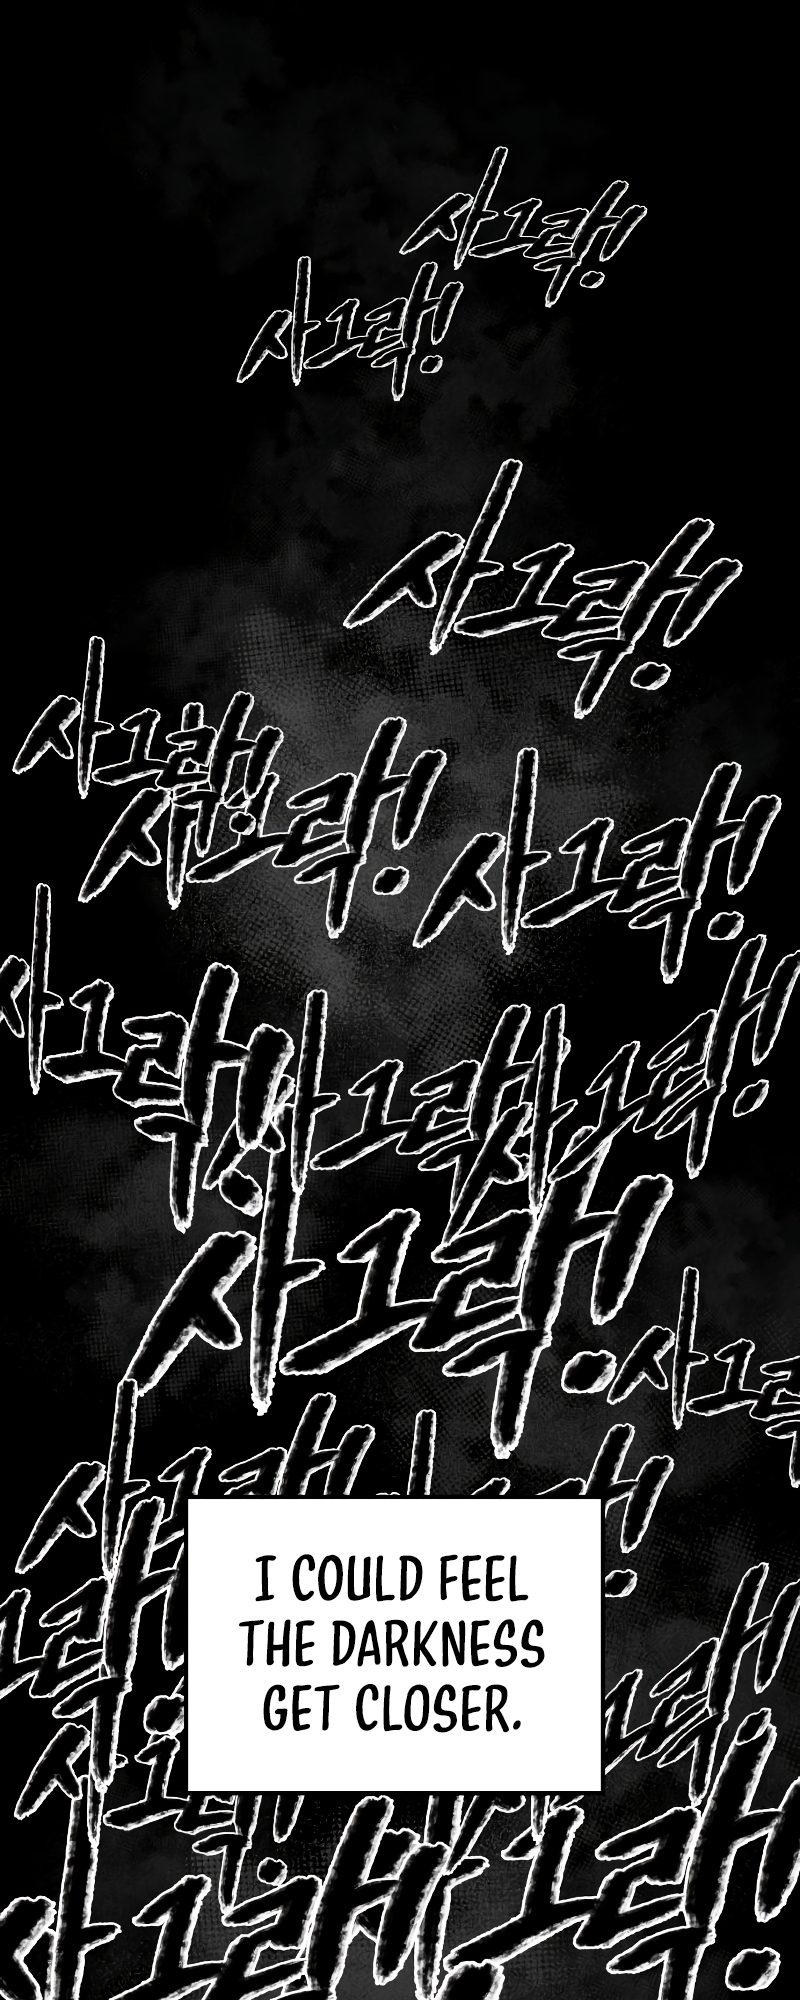 사그락!
사그락!
사그락!
사그락!
사그락!
사그락!
사그락!
사그락!
사그락!
사그락!
사그락!
사그락!
I COULD FEEL
THE DARKNESS
GET CLOSER.
사그락!
사그락!